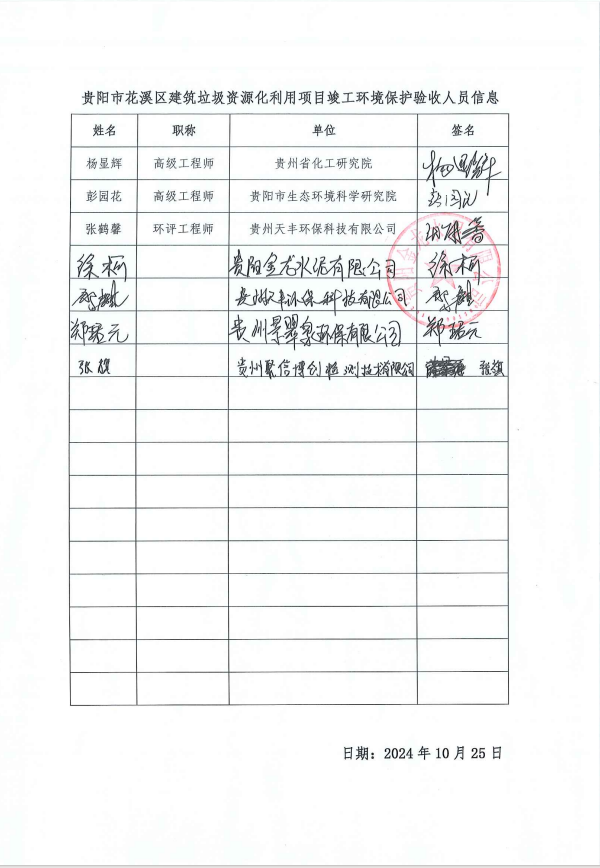 贵阳市花溪区建筑垃圾资源化利用项目竣工环境保护验收人员信息
姓名 职称 单位 签名
杨显辉 高级工程师 贵州省化工研究院 杨显辉
彭园花 高级工程师 贵阳市生态环境科学研究院
张鹤馨 环评工程师 贵州天丰环保科技有限公司
徐柯 贵阳金龙水泥有限公司 徐柯
环保科技有限公司
郑瑞元 贵州景翠泉环保有限公司 郑瑞元
张旗 贵州聚信博创检测技术有限公司 张旗
日期：2024年10月25日